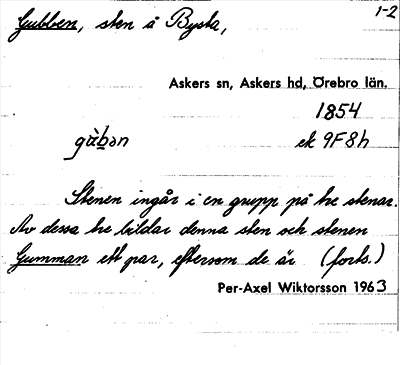 1-2
Gubben, sten å Bysta,
Askers sn, Askers hd, Örebro län.
1854
gὰb̲ən ek 9F8h
Stenen ingår i en grupp på tre stenar.
Av dessa tre bildar denna sten och stenen
Gumman ett par, eftersom de är (forts.)
Per-Axel Wiktorsson 1963